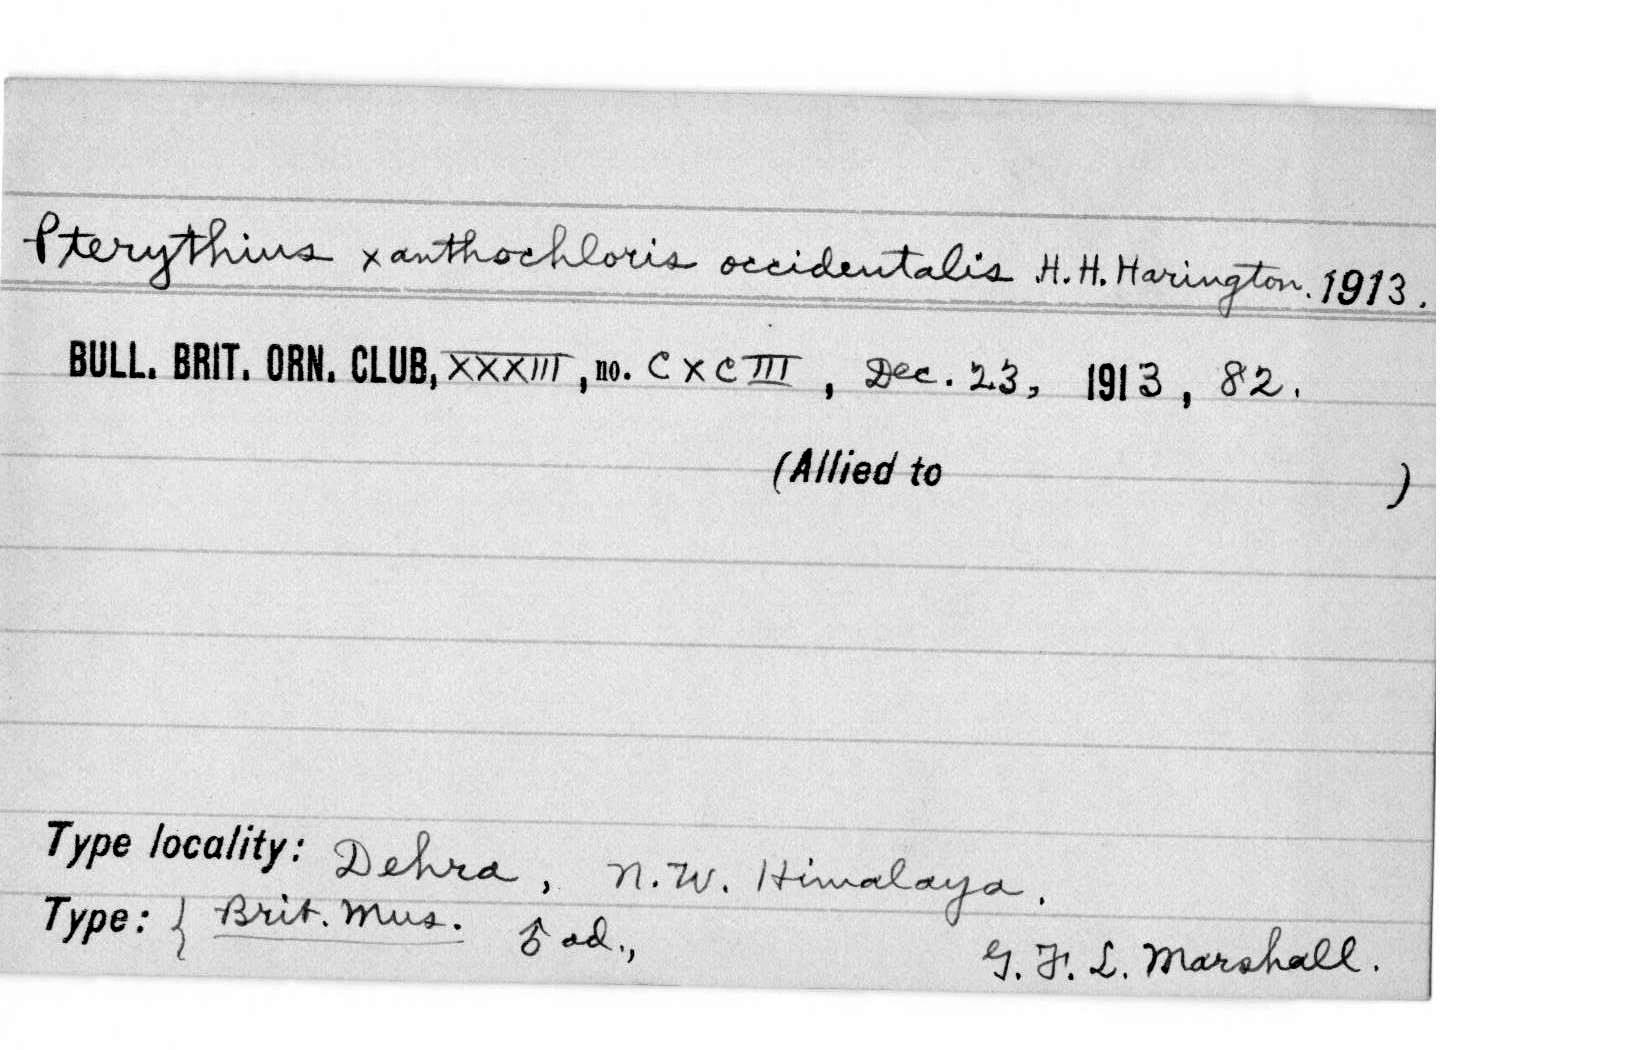 Pterythius xanthochloris occidentalis H. H. Harington. 1913.
BULL. BRIT. ORN. CLUB, XXXIII, no. CXCIII, Dec. 23, 1913, 82.
(Allied to )
Type locality: Dehra, N.W. Himalaya.
Type: { Brit. Mus. ♂ ad., G. F. L. Marshall.